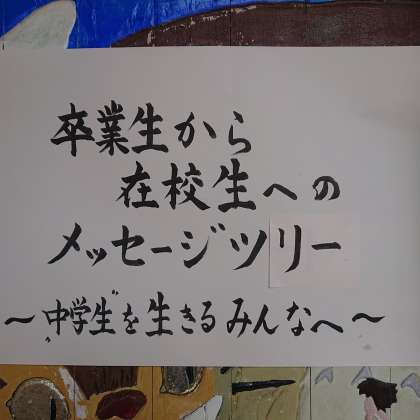 卒業生から
在校生への
メッセージツリー
～“中学生”を生きるみんなへ～